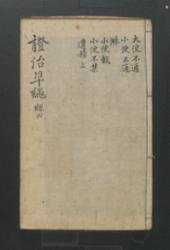 大便不通
小便不通
淋
小便數
小便不禁
遺精 上
證治準繩